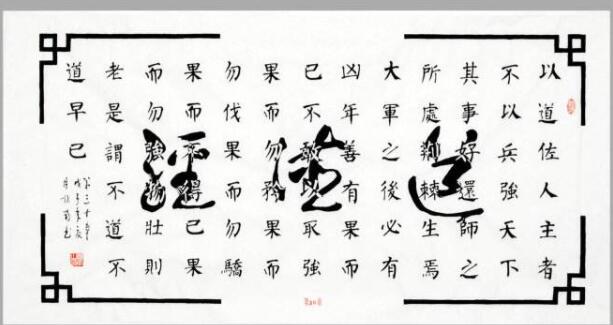 道德經
以道佐人主者
不以兵強天下
其事好還師之
所處荊棘生焉
大軍之後必有
凶年善有果而
已不敢以取強
果而勿矜果而
勿伐果而勿驕
果而不得已果
而勿強物壯則
老是謂不道不
道早已
第三十章
戊子年